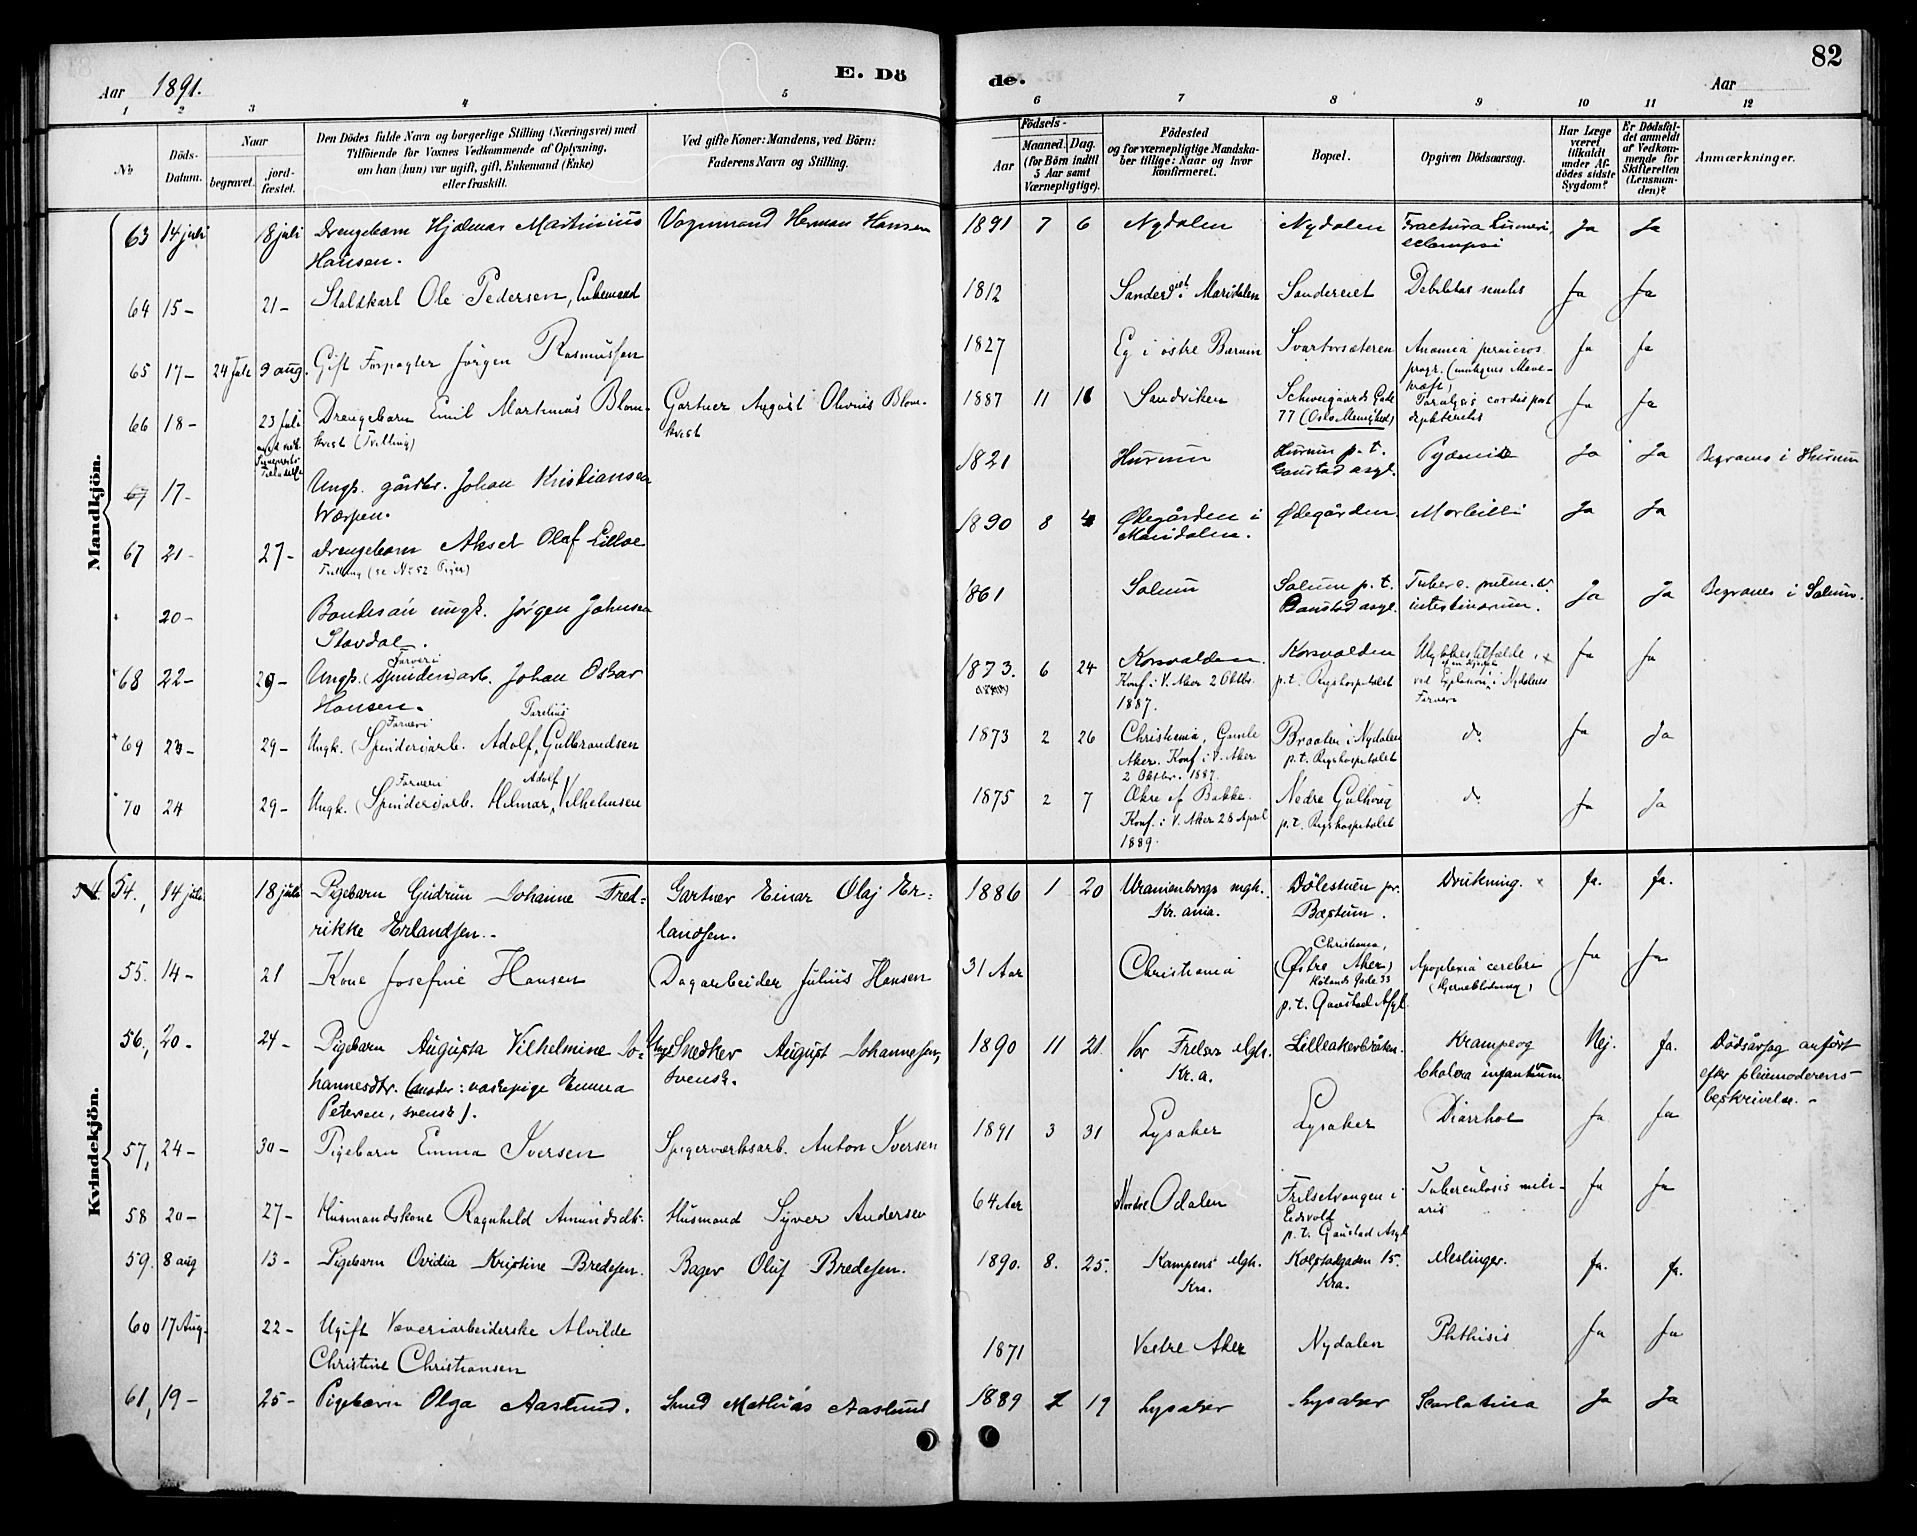 82
Aar 1891.
E. Dö
de.
Aar
1 2 3 4 5
6 7 8 9 10 11 12
No
Döds-Datum.
Naar
begravet.
jordfæstet.
Den Dödes fulde Navn og borgerlige Stilling (Næringsvei) med
Tilföiende for Voxnes Vedkommende af Oplysning,
om han (hun) var ugift, gift, Enkemand (Enke)
eller fraskilt.
Ved gifte Koner: Mandens, ved Börn:
Faderens Navn og Stilling.
Födsels-
Aar
Maaned. Dag.
(for Börn indtil
5 Aar samt
Værnepligtige).
Födested
og for værnepligtige Mandskaber tillige: Naar og hvor
konfirmeret.
Bopæl.
Opgiven Dödsaarsag.
Har Læge
været
tilkaldt
under Afdödes sidste
Sygdom?
Er Dödsfaldet anmeldt
af Vedkommende for
Skifteretten
(Lensmanden)?
Anmærkninger.
Mandkjön.
63 14 juli 18 juli Drengebarn Hjalmar Martinius Vognmand Herman Hansen 1891 7 6 Nydalen Nydalen Fractura Ja Ja
Hansen.
64 15- 21- Staldkarl Ole Pedersen, Enkemand 1812 Sandereiet Maridalen Sandereiet Debilitas senilis Ja Ja
65 17- 24 Juli 9 aug. Gift Forpagter Jörgen Rasmussen 1827 Eg i östre Bærum Svartorsæteren Anæmia pernicios. Ja Ja
progr.
66 18- 23 Juli Drengebarn Emil Martinius Blomkvist (Tvilling) Gartner August Olivius Blomkvist 1887 11 16 Sandviken Schweigaards Gade Paralysis cordis post Ja Ja
77 (Oslo Menighed)
67 17- Ungk. gårdbr. Johan Kristiansen 1821 Hurum Hurum p. t. Pyæmie Ja Ja Begraves i Hurum
Værpen. Gaustad asyl.
67 21- 27- Drengebarn Aksel Olaf Lilloe 1890 8 4 Ødegården i Ødegården Morbilli Ja Ja
Tvilling (se No 52 Piger) Maridalen.
20- Bondesön ungk. Jörgen Johnsen 1861 Solum Solum p. t. Tuberc. pulm. & Ja Ja Begraves i Solum.
Stavdal. Gaustad asyl. intestinorum.
68 22- 29- Ungk. (Spinderi)arb. Johan Oskar 1873. 6 24 Korsvolden. Korsvolden Ulykkestilfælde Ja Ja
Farveri
Hansen. Konf. i V. Aker 2 Oktbr. p. t. Rigshospitalet ved Explosion i Nydalens
1887. Farveri
69 23- 29- Ungk. (Spinderi)arb. Adolf Gulbrandsen 1873 2 26 Christiania, Gamle Braaten i Nydalen do Ja Ja
Farveri
Aker. Konf i V. Aker p. t. Rigshospitalet
2 Oktbr. 1887.
70 24 29- Ungk. (Spinderi)arb. Hilmar Adolf Vilhelmsen 1875 2 7 Økre af Bakke. Nedre Gulhoug do Ja Ja
Farveri
Konf. i V. Aker 28 April p. t. Rigshospitalet
1889.
Kvindekjön.
54., 14 juli 18 juli Pigebarn Gudrun Johanne Fred- Gartner Einar Olaj Er- 1886 1 20 Uranienborgs mgh. Dölestuen pr. Drukning. Ja. Ja.
rikke Erlandsen.- landsen. Kr.ania. Bæstum.
55. 14- 21 Kone Josefine Hansen Dagarbeider Julius Hansen 31 Aar Christiania Christiania, Apoplexia cerebri Ja Ja
(Østre Aker) (Hjerneblödning)
Gade 33
p. t. Gaustad Asyl.
56., 20- 24- Pigebarn Augusta Vilhelmine Jo- Ungk Snedker August Johannesen, 1890 11 21. Vor Frelsers Mgh. Lilleakerbråten. Krampe og Nej. Ja. Dödsårsag anfört
hannesdtr. (moder: vaskepige Emma svensk. Kr.a. Cholera infantium efter pleiemoderens
Petersen, svensk). beskrivelse.-
57, 24- 30- Pigebarn Emma Iversen Spigerværksarb. Anton Iversen 1891 3 31 Lysaker Lysaker Diarrhoe Ja Ja
58 20- 27- Husmandskone Ragnhild Amundsdtr. Husmand Syver Andersen 64 Aar Nordre Odalen Frilsetvangen i Tuberculosis mili- Ja Ja
Eidsvold aris
p. t. Gaustad Asyl
59. 8 aug 13- Pigebarn Ovidia Kristine Bredesen. Bager Oluf Bredesen. 1890. 8. 25. Kampens Mgh. Kolstadgaden 15. Meslinger. Ja. Ja.
Kra. Kra.
60 17 Aug. 22- Ugift Væveriarbeiderske Alvilde 1871 Vestre Aker Nydalen Phthisis Ja Ja
Christine Christiansen
61, 19- 25- Pigebarn Olga Aaslund. Smed Mathias Aaslund 1889 19 Lysaker Lysaker Scarlatina Ja Ja